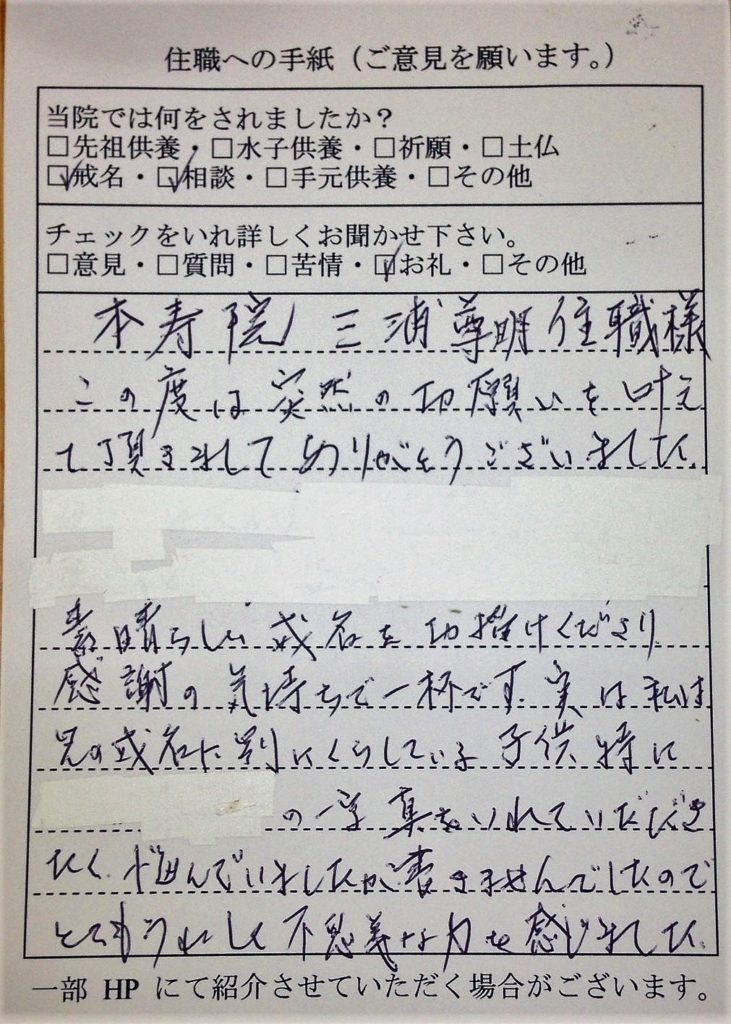 住職への手紙（ご意見を願います。）
当院では何をされましたか？
□先祖供養・□水子供養・□祈願・□土仏
☑戒名・☑相談・□手元供養・□その他
チェックをいれ詳しくお聞かせ下さい。
□意見・□質問・□苦情・☑お礼・□その他
本寿院 三浦尊明住職様
この度は突然の切願いを叶え
て頂きましてありがとうございました。
素晴らしい戒名を 授けくださり
感謝の気持ちで一杯です。実は私は
兄の戒名に別にくらしている子供 特に
の一字 をいれていただき
たく、悩んでいましたが書きませんでしたので
とてもうれしく不思議な力を感じました。
一部 HP にて紹介させていただく場合がございます。